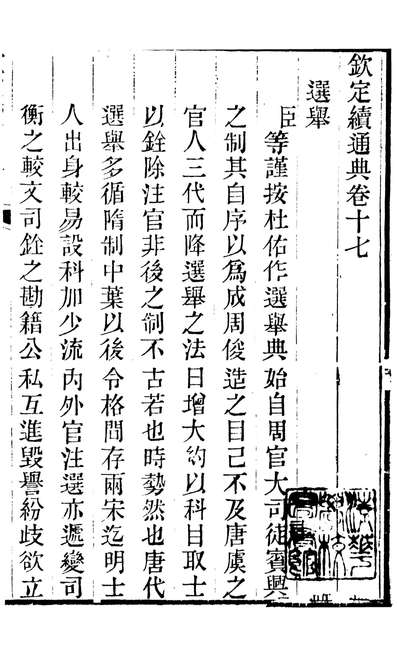 欽定續通典卷十七
選舉
臣等謹按杜佑作選舉典始自周官大司徒賓興
之制其自序以為成周俊造之目已不及唐虞之
官人三代而降選舉之法日增大約以科目取士
以銓除注官非後之制不古若也時勢然也唐代
選舉多循隋制中葉以後令格間存兩宋迄明士
人出身較易設科加少流內外官注選亦遞變司
衡之較文司銓之勘籍公私互進毀譽紛歧欲立